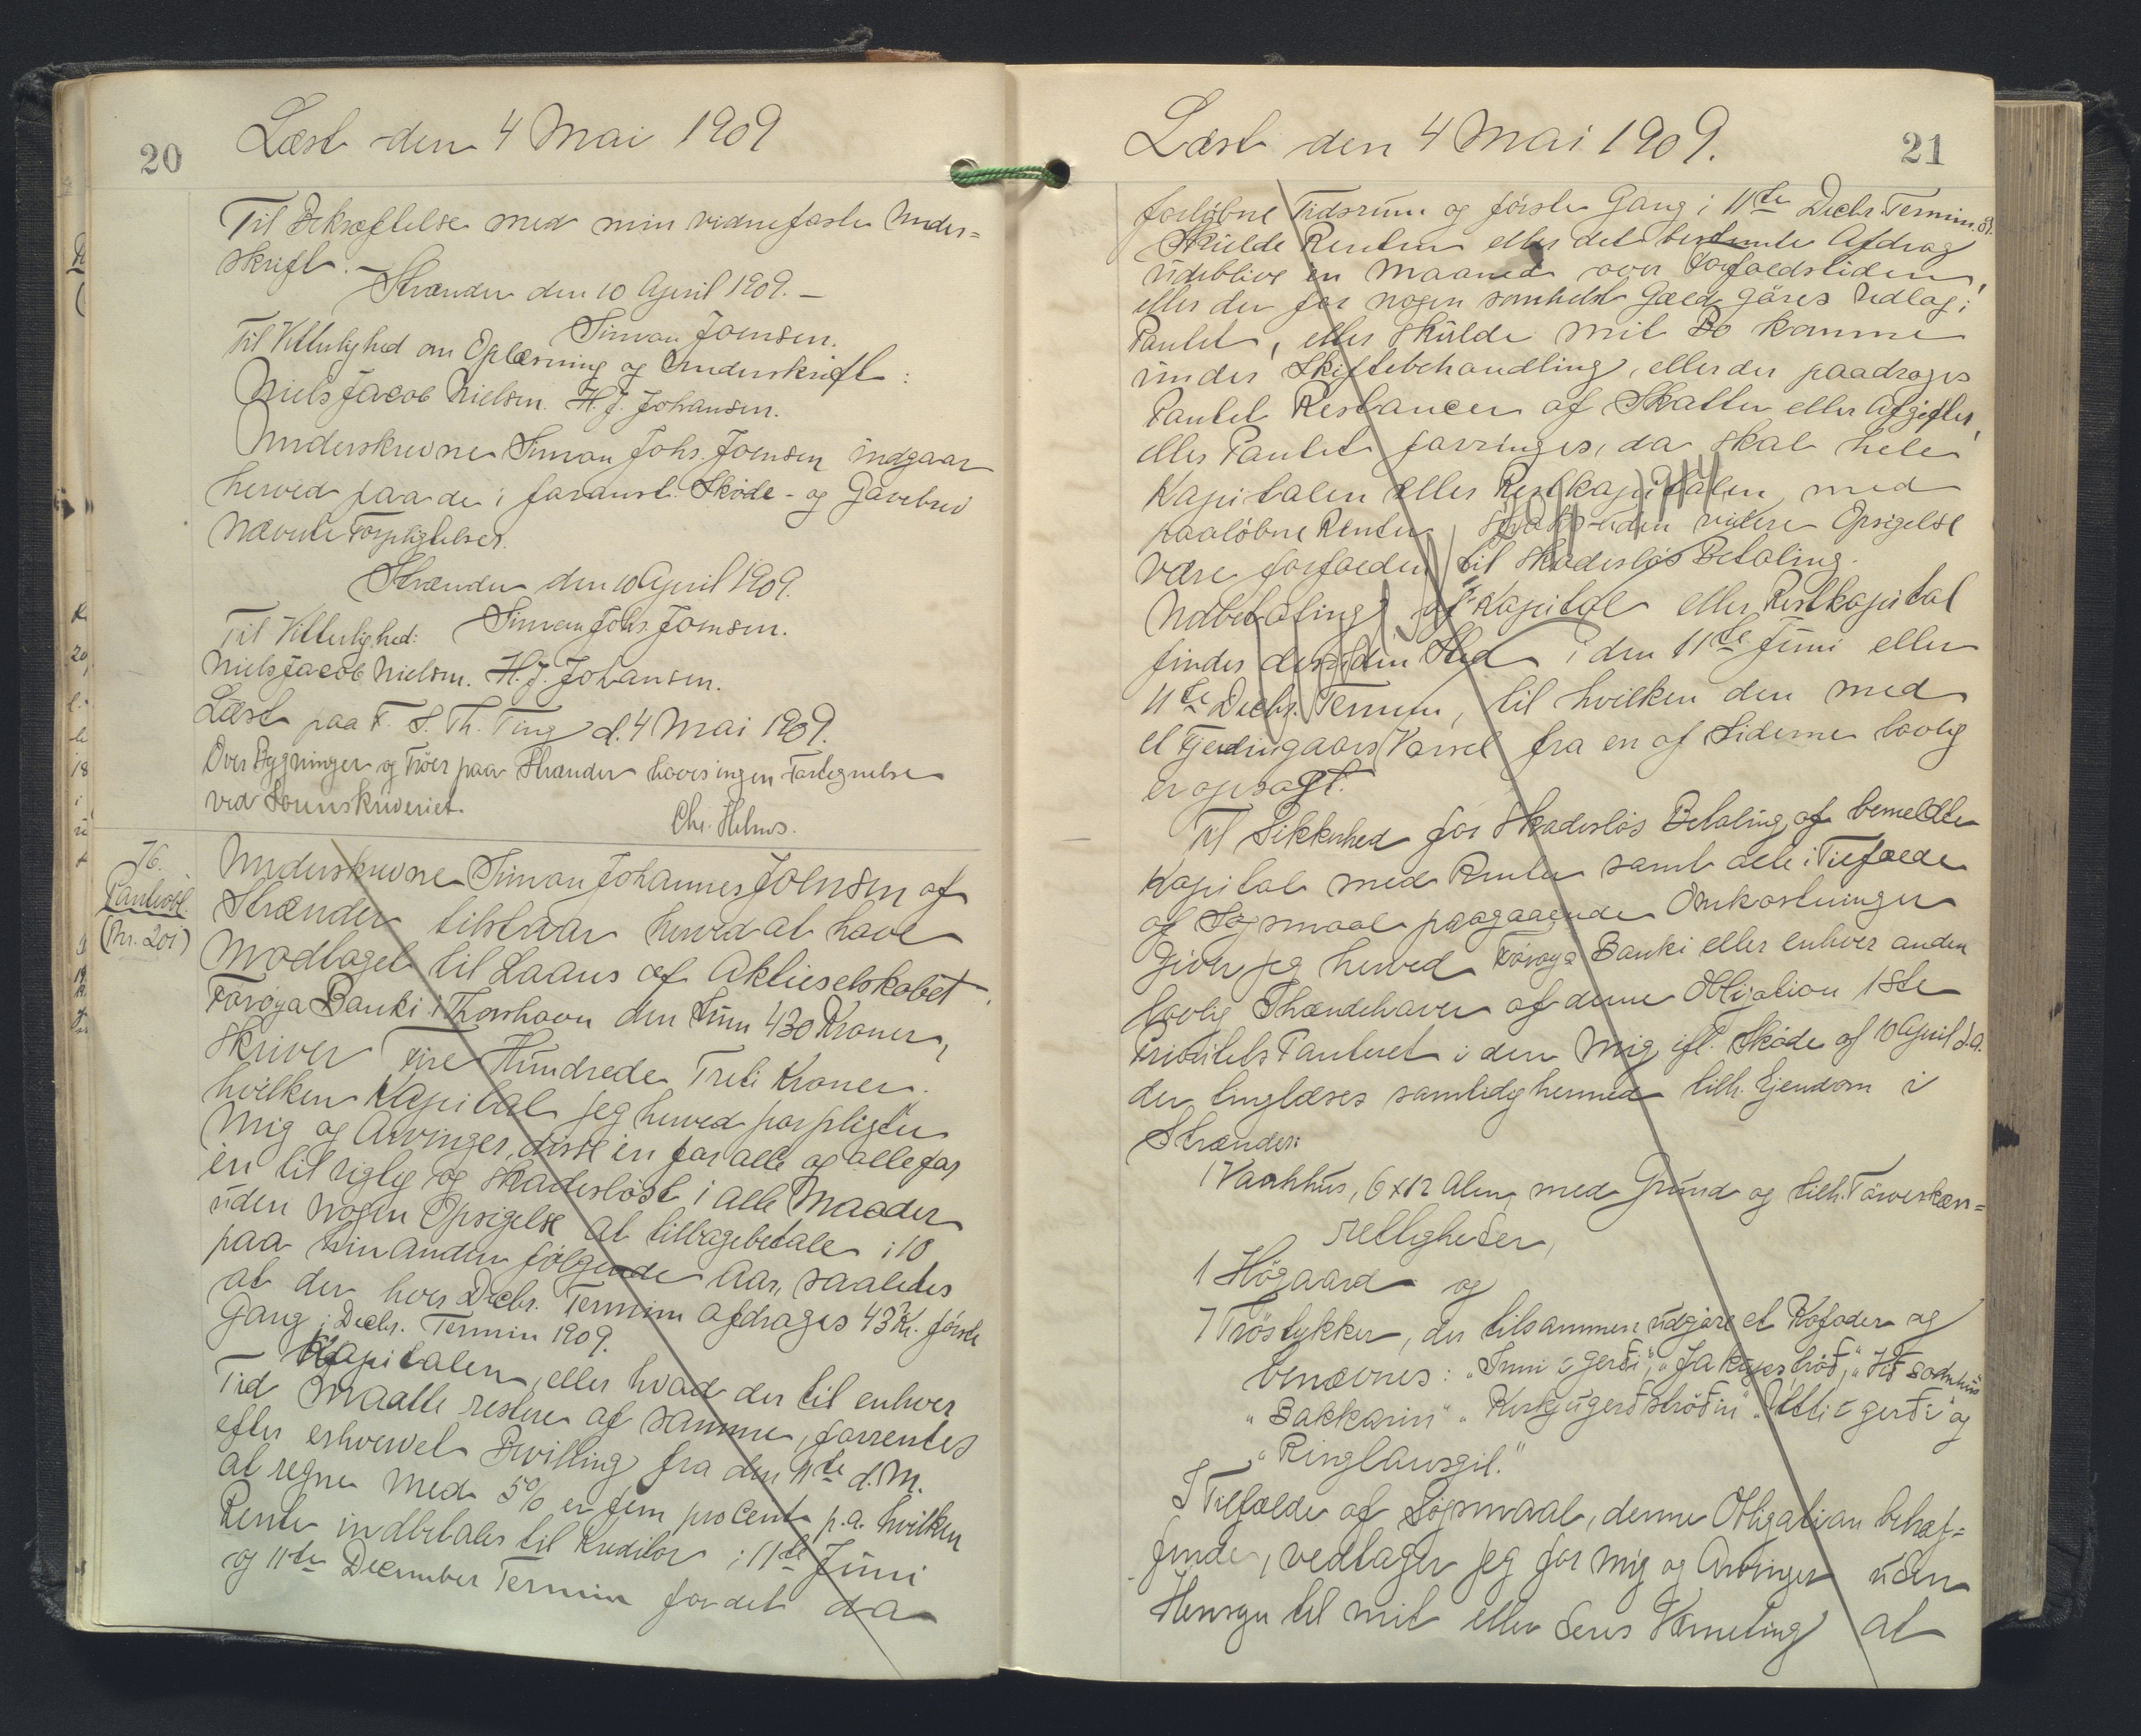 20
Læst den 4 Mai 1909
Til Bekræftelse med min vidnefaste Under=
skrift. —
Strænder den 10 April 1909. —
Simon Joensen.
Til Vitterlighed om Oplæsning og Underskrift:
Niels Jacob Nielsen. H. J. Johansen.
Underskrevne Simon Johs. Joensen indgaar
herved paa de i foranst. Skøde- og Gavebrev
nævnte Forpligtelser.
Strænder den 10 April 1909.
Simon Johs. Joensen.
Til Vitterlighed:
Niels Jacob Nielsen. H. J. Johansen.
Læst paa F. S. Th. Ting d. 4 Mai 1909.
Over Bygninger og Trøer paa Strænder haves ingen Fortegnelse
ved Sorenskriveriet.
Chr. Helms.
76.
Pantiobl.
(Nr. 201)
Underskrevne Simon Johannes Joensen af
Strænder tilstaar herved at have
modtaget til Laans af Aktieselskabet
Føroya Banki i Thorshavn den Sum 430 Kroner,
skriver Fire Hundrede Treti Kroner,
hvilken Kapital jeg herved forpligter
mig og Arvinger, disse en for alle og alle for
en til rigtig og skadesløst i alle Maader
uden nogen Opsigelse at tilbagebetale i 10
paa hinanden følgende Aar, saaledes
at der hver Decbr. Termin afdrages 43 Kr. første
Gang i Decbr. Termin 1909.
Kapitalen, eller hvad der til enhver
Tid maatte restere af samme, forrentes
efter erhvervet Bevilling fra den 11te d. M.
at regne med 5% er fem procent p.a. hvilken
Rente indbetales til Kreditor i 11te Juni
og 11te December Termin for det da
Læst den 4 Mai 1909.
21
forløbne Tidsrum og første Gang i 11te Decbr. Termin d. A.
Skulde Renten eller det bestemte Afdrag
udeblive en Maaned over Forfaldstiden,
eller der for nogen somhelst Gæld gøres Udlæg i
Pantet, eller skulde mit Bo komme
under Skiftebehandling, eller der paadrages
Pantet Restancer af Skatter eller Afgifter,
eller Pantet forringes, da skal hele
Kapitalen eller Restkapitalen med
paaløbne Renter straks uden videre Opsigelse
være forfalden til skadesløs Betaling.
Udbetaling af Kapital eller Restkapital
finder desuden Sted i den 11te Juni eller
11te Decbr. Termin, til hvilken den med
et Fjerdingaars Varsel fra en af Siderne lovlig
er opsagt.
Til Sikkerhed for skadesløs Betaling af bemeldte
Kapital med Renter samt alle i Tilfælde
af Søgsmaal paagaaende Omkostninger
giver jeg herved Føroya Banki eller enhver anden
lovlig Ihændehaver af denne Obligation 1ste
Prioritets Panteret i den mig ifl. Skøde af 10 April d. A.
der tinglæses samtidig hermed tilh. Ejendom i
Strænder:
1 Vaanhus, 6 x 12 Alen, med Grund og tilh. Tørveskæn=
rettigheder,
1 Høgaard og
7 Trøstykker, der tilsammen udgøre et Kofoder og
benævnes: "Inni í gerði", "Jakupstrøð,"
"Bakkarin" "Kirkjugerðstrøðin" "Utti í gerði" og
"Ringlansgil."
I Tilfælde af Søgsmaal, denne Obligation behæf=
tende, vedtager jeg for mig og Arvinger uden
Hensyn til mit eller deres Værneting at